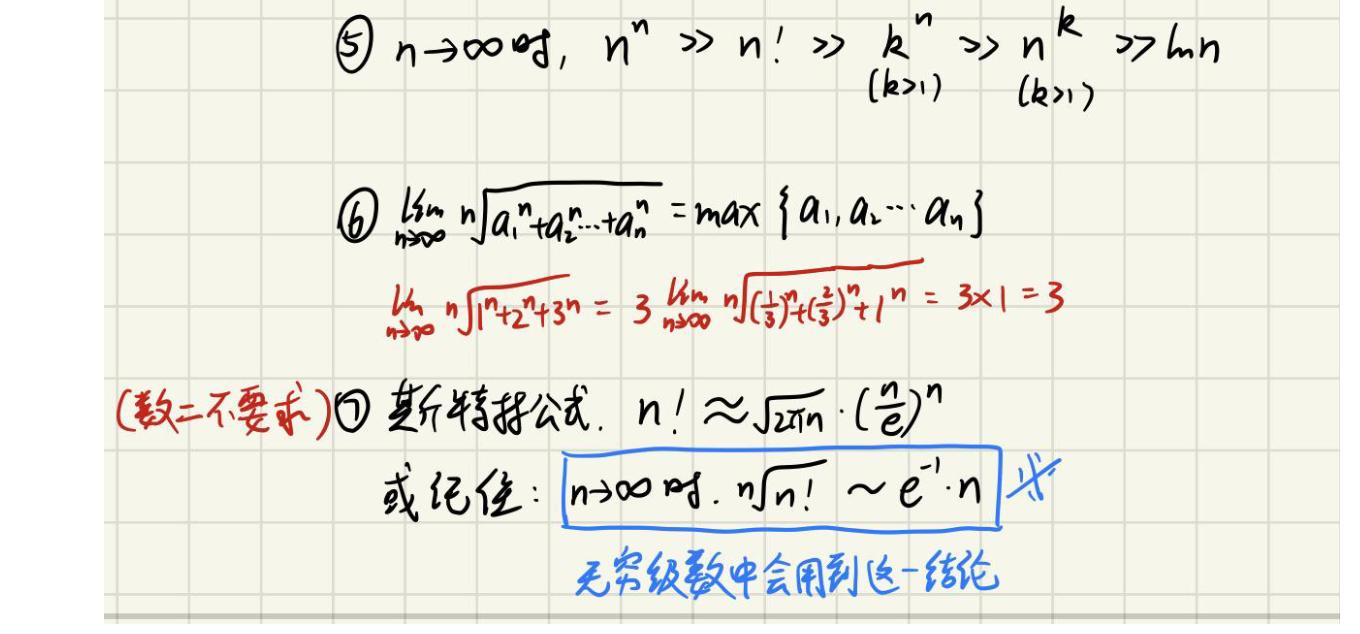 ⑤ n→∞时, nⁿ >> n! >> kⁿ >> nᵏ >> ln n
(k>1) (k>1)
⑥ lim n→∞ ⁿ√(a₁ⁿ+a₂ⁿ…+aₙⁿ) = max {a₁, a₂ … aₙ}
lim n→∞ ⁿ√(1ⁿ+2ⁿ+3ⁿ) = 3 lim n→∞ ⁿ√((1/3)ⁿ+(2/3)ⁿ+1ⁿ) = 3×1 = 3
(数二不要求) ⑦ 斯特林公式. n! ≈ √(2πn) · (n/e)ⁿ
或记住: n→∞时. ⁿ√(n!) ~ e⁻¹·n ※
无穷级数中会用到这一结论